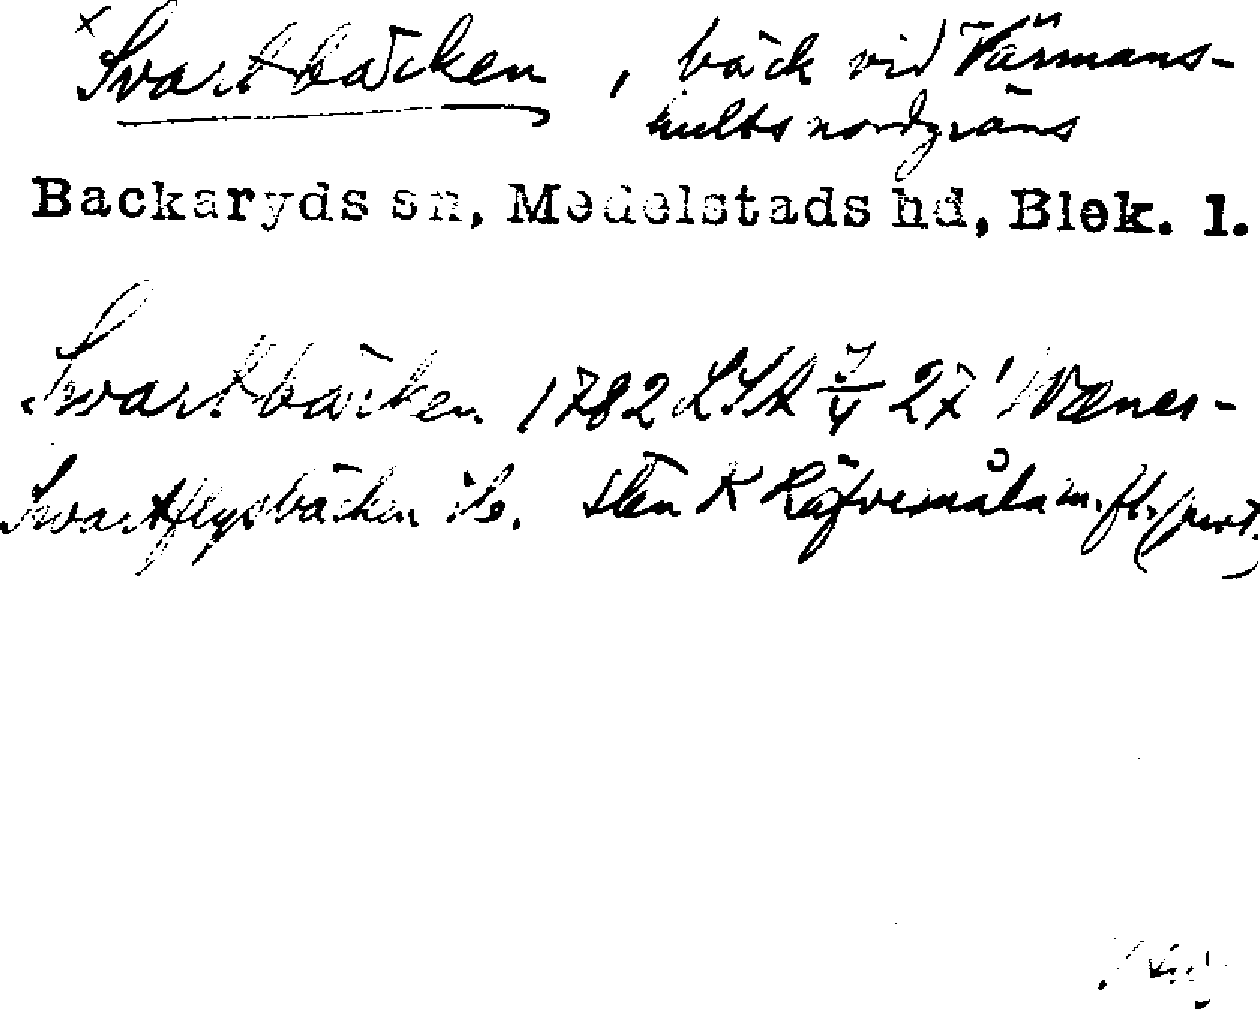 x Svartbäcken, bäck vid Värmans-
hults nordgräns
Backaryds sn, Medelstads hd, Blek. l.
Svartbäcken 1782 LSA 27
Svartflysbäcken ib. sten K Räfvemåla m.fl. (prot.)